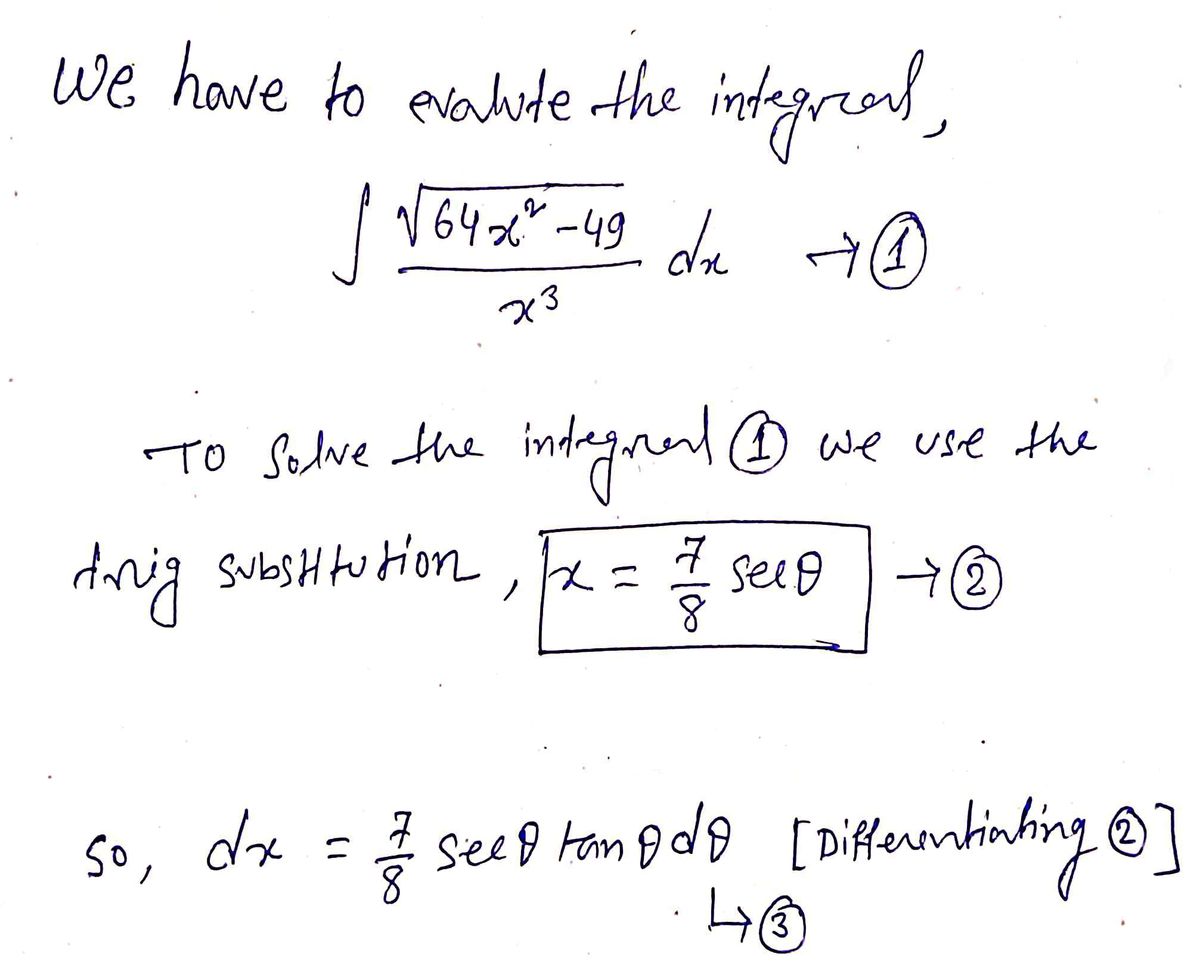 We have to evalute the integral,
∫ √(64x² - 49) / x³ dx → ①
To solve the integral ① we use the
trig substitution, x = 7/8 secθ → ②
so, dx = 7/8 secθ tanθ dθ [Differentiating ②]
↳ ③